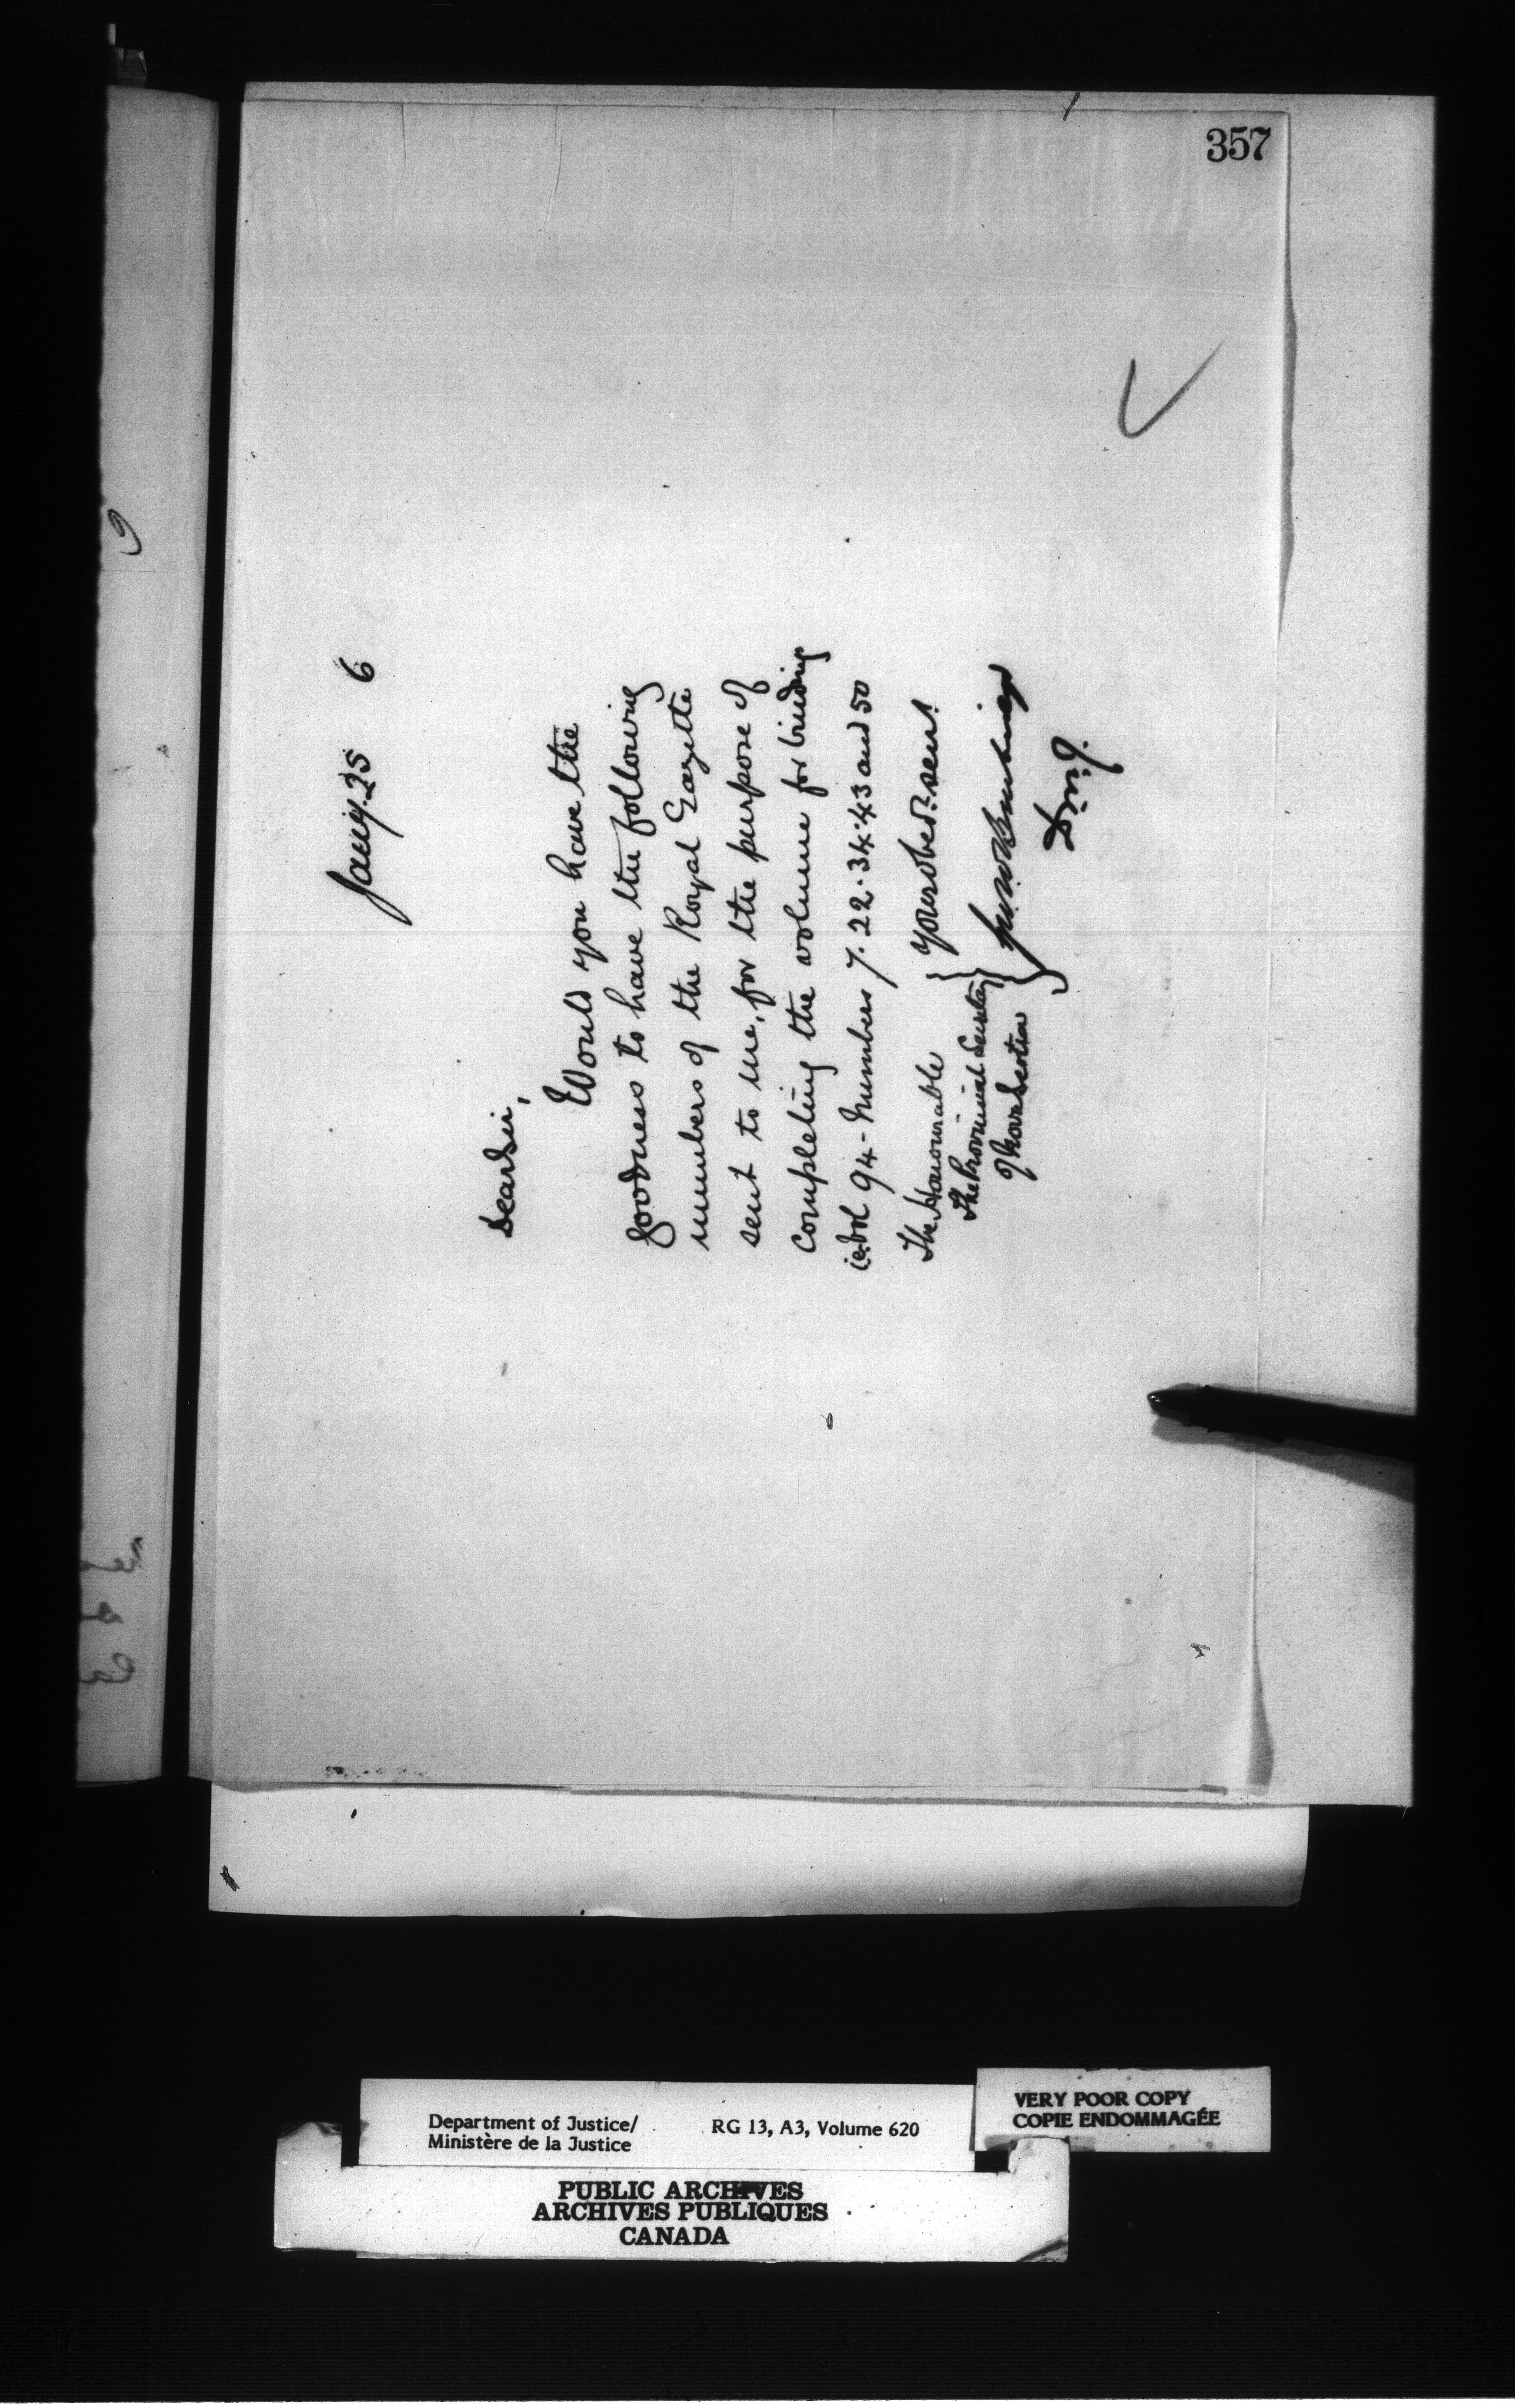 357
Jany. 25 6
Dear Sir,
Would you have the
goodness to have the following
numbers of the Royal Gazette
sent to me, for the purpose of
completing the volume for binding
i.e. Vol 94 - Numbers 7. 22. 34. 43 and 50
Your obedt. servt.
The Honourable
The Provincial Secretary
of Nova Scotia
D.M.J.
Department of Justice/
Ministère de la Justice
RG 13, A3, Volume 620
VERY POOR COPY
COPIE ENDOMMAGÉE
PUBLIC ARCHIVES
ARCHIVES PUBLIQUES
CANADA